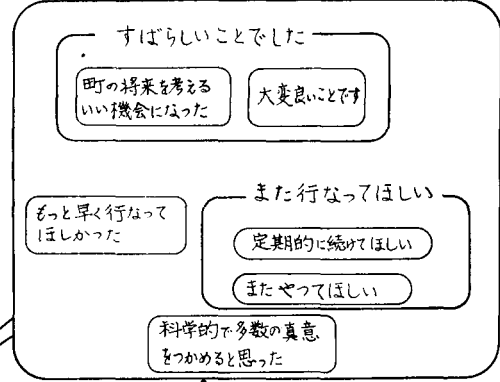 すばらしいことでした
町の将来を考える
いい機会になった
大変良いことです
もっと早く行なって
ほしかった
また行なってほしい
定期的に続けてほしい
またやってほしい
科学的で多数の真意
をつかめると思った